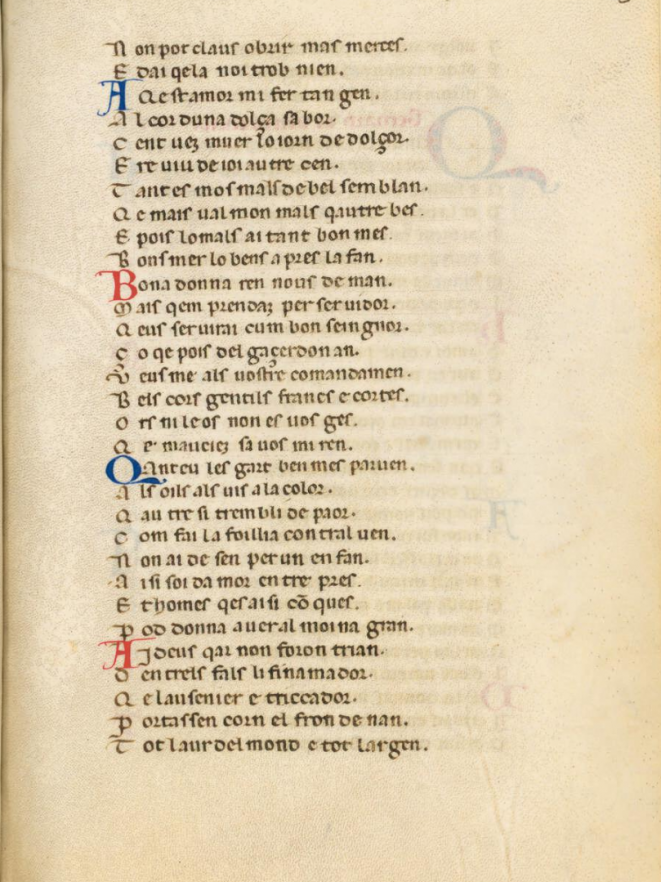 N on por claus obrir mas merces.
E dai qela noi trob nien.
A Qest amor mi fer tan gen.
A l cor duna dolça sabor.
C ent uez muer lo iorn de dolçor.
E re uiu de ioi autre cen.
T ant es mos mals de bel semblan.
Q e mais ual mon mals qautre bes.
E pois lo mals ai tant bon mes.
B ons mer lo bens apres lafan.
B ona donna ren nous deman.
M ais qem prendaz per seruidor.
Q eus seruirai cum bon seingnor.
C o qe pois del gaçerdon an.
V eus me als uostre comandamen.
B els cors gentils francs e cortes.
O rs ni leos non es uos ges.
Q e mauciez sa uos mi ren.
Q Ant eu les gart ben mes paruen.
A ls oils als uis a la color.
Q autresi trembli de paor.
C om fai la foillia contral uen.
N on ai de sen per un enfan.
A isi soi damor entrepres.
E t homes qes aisi cõqes.
P od donna aueral moina gran.
A J deus qar non foron trian.
D entrels fals li fin amador.
Q e lausenier e triccador.
P ortassen corn el fron denan.
T ot laur del mond e tot largen.